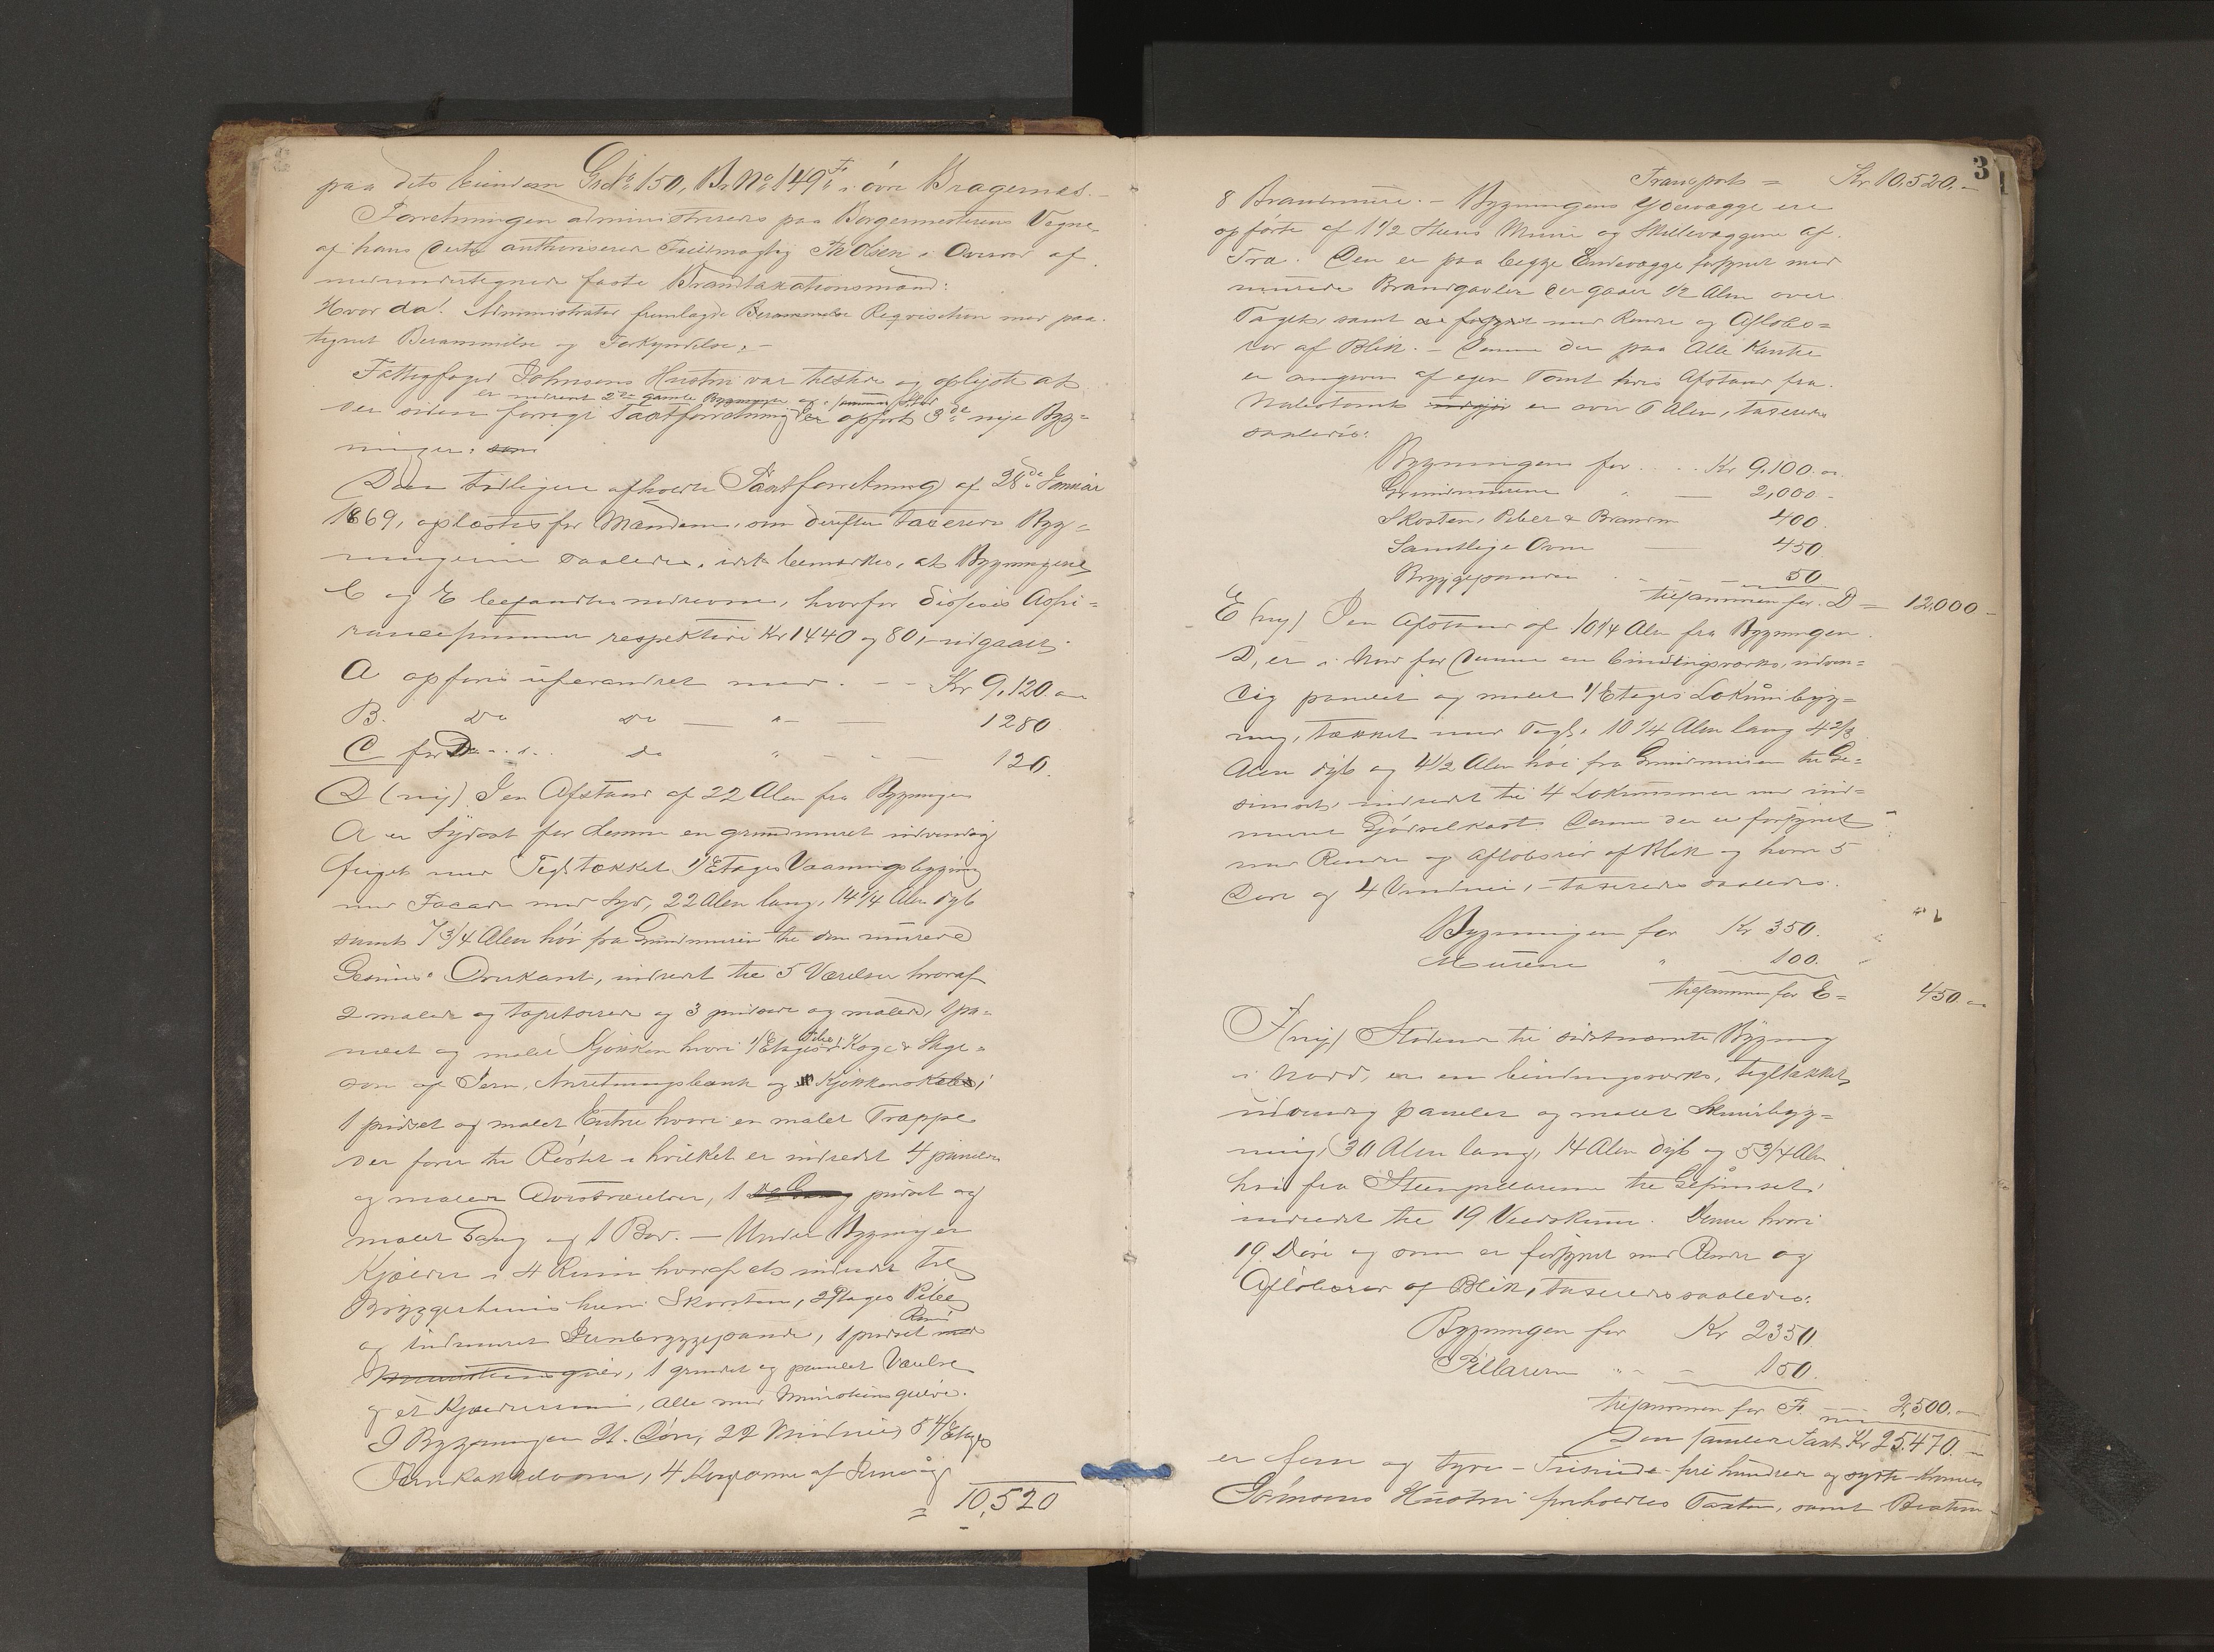 paa dets Eiendom Grd № 150, Br № 149 F i övre Bragernes.-
Forretningen administreredes paa Borgermesterens Vegne,
af hans dertil authoriserede Fuldmægtig Th Olsen i Overvær af
medundertegnede faste Brandtaxationsmænd:
Hvor da! Administrator fremlagde Reqvisition med paa-
tegnet Berammelse og Forkyndelse,-
Fattigfoged Johnsens Hustru var tilstede og oplyste at
er nedrevet 2de gamle Bygninger og
der siden forrige Taxtforretning er opfört 3de nye Byg=
ninger.
Den tidligere afholdte Taxtforretning af 28de Januar
1869, oplæstes for Mændene, som derefter taxerede Byg=
ningerne saaledes, idet bemærkes, at Bygningerne
C og E befandtes nedrevne, hvorfor disses Assu=
rancesummer respektive Kr 1440 og 80,- udgaaer.
A opföres uforandret med - - Kr 9,120.
B. Do Do — " — 1280
C för D... do " - - 120.
D (ny) I en Afstand af 22 Alen fra Bygningen
A er Sydost for denne en grundmuret indvendig
fuget med Tegl tækket 1/Etages Vaaningsbygning
med Facade mod Syd, 22 Alen lang, 14 1/4 Alen dyb
samt 7 3/4 Alen höi fra Grundmuren til den murede
Gesims Overkant, indredet til 5 Værelser hvoraf
2 malede og tapetserede og 3 pudsede og malede, 1 pa=
nelet og malet Kjökken hvori 1/Etages Koge & Stege=
ovn af Jern, Anretningsbænk og Kjökken
1 pudset og malet Entree hvori en malet Trappe
der förer til Röstet i hvilket er indredet 4 panelede
og malede Qvistværelser, 1 pudset og
malet Gang og 1 Bod. — Under Bygning er
Kjælder i 4 Rum hvoraf et indredet til
Bryggerhuus hvori Skorsten, 2 Etages Pibe
Rum
og indmuret Jernbryggepande, 1 pudset
1 grundet og panelet Værelse
og et Kjælderrum, alle med Murstensgulve.
I Bygningen 21 Döre, 22 Vinduer, 5 4/Etages
Jernkakkelovne, 4 af Jern og
= 10,520
3
Transport = Kr 10,520.-
8 Brandmure. - Bygningens Ydervægge ere
opförte af 1 1/2 Steens Muur og Skillevæggene af
Træ. Den er paa begge Endevægge forsynet med
murede Brandgavler der gaaer 1/2 Alen over
Taget, samt er forsynet med Render og Aflöbs=
rör af Blik. - Denne der paa Alle Kanter
er omgiven af egen Tomt hvis Afstand fra
Nabotomt er over 6 Alen, taxeredes
saaledes:
Bygningen for .... Kr 9,100.
Grundmurene " — 2,000 -
Skorsten, Piber & Brandm 400.
Samtlige Ovne — 450.
Bryggepanden - — 50
tilsammen for D = 12,000 -
E (ny) I en Afstand af 10 1/4 Alen fra Bygningen
D, er i Nord for denne en bindingsværks, udven=
dig panelet og malet 1/Etages Lokumbyg=
ning, tækket med Tegl, 10 1/4 Alen lang 4 2/3
Alen dyb og 4 1/2 Alen höi fra Grundmuren til Ge=
simset, indredet til 4 Lokummer med ind=
muret Gjödselkaste. Denne der er forsynet
med Render og Aflöbsrör af Blik og hvori 5
Döre og 4 Vinduer, - taxeredes saaledes:
Bygningen for Kr 350.
Murene " 100.
tilsammen for E = 450
F (ny) Stödende til sidstnævnte Bygning
i Nord, er en bindingsværks, tegltækket,
udvendig panelet og malet Skuurbyg=
ning, 30 Alen lang, 14 Alen dyb og 5 3/4 Alen
höi fra Steenpillarerne til Gesimset,
indredet til 19 Vedskuur. Denne hvori
19 Döre og som er forsynet med Render og
Aflöbsrör af Blik, taxeredes saaledes:
Bygningen for Kr 2350
Pillarerne " - 150.
tilsammen for F. — 2,500.-
Den samlede Taxt Kr 25,470.-
er fem og tyve - Tusinde fire hundrede og sytti Kroner
Johnsens Hustru foreholdtes Taxten, samt Bestem-